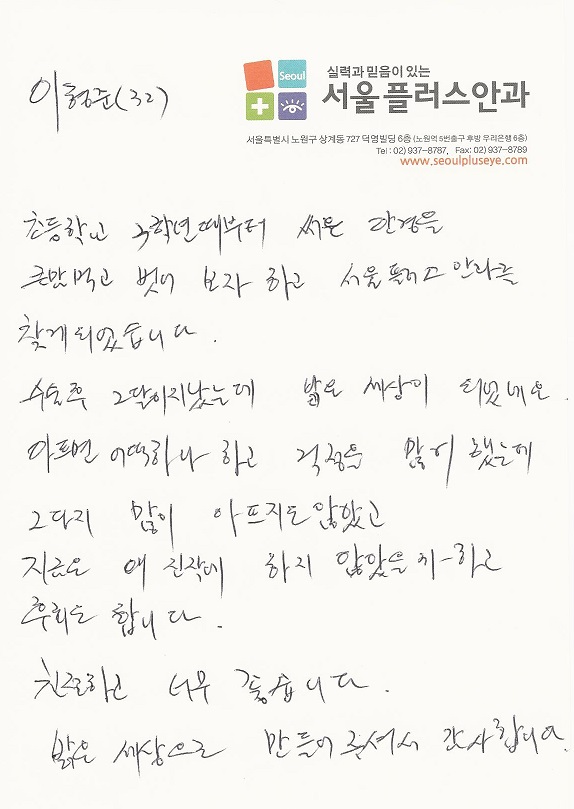 이형준(32)
Seoul
실력과 믿음이 있는
서울플러스안과
서울특별시 노원구 상계동 727 덕영빌딩 6층 (노원역 5번출구 후방 우리은행 6층)
Tel : 02) 937-8787, Fax: 02) 937-8789
www.seoulpluseye.com
초등학교 3학년때부터 써온 안경을
큰맘먹고 벗어 보자 하고 서울플러스안과를
찾게되었습니다.
수술후 2달이지났는데 밝은 세상이 되었네요.
아프면 어떡하나 하고 걱정을 많이 했는데
그다지 많이 아프지도 않았고
지금은 왜 진작에 하지 않았을까-하고
후회도 합니다.
친절하고 너무 좋습니다.
밝은 세상으로 만들어주셔서 감사합니다.